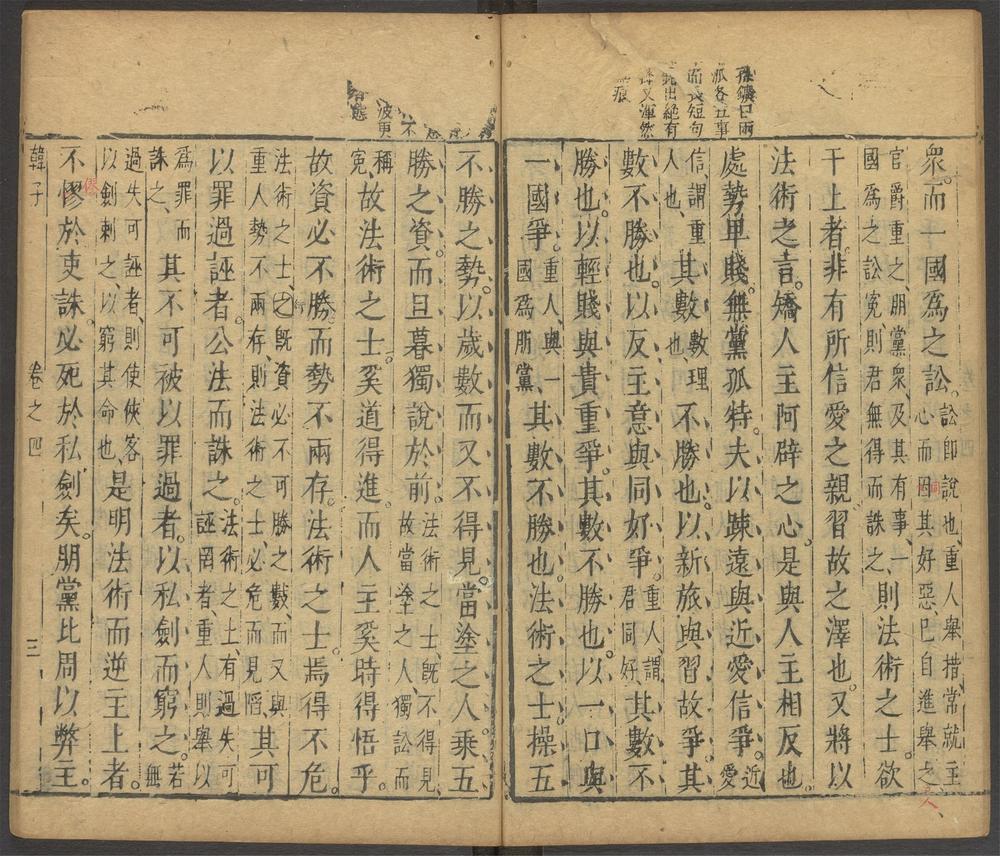 孫鑛曰兩
派各五事
而長短句
錯出絕有
又渾然
痕
衆。而一國爲之訟。訟即說也、重人舉措常就主
心而因其好惡、已自進舉之
同
人
官爵重之、朋黨衆、及其有事、一
國爲之訟寃則君無得而誅之、則法術之士欲
干上者。非有所信愛之親習故之澤也。又將以
法術之言。矯人主阿辟之心。是與人主相反也。
處勢卑賤。無黨孤特。夫以踈遠與近愛信爭。近
愛
信、謂重
人也、其數數理
也不勝也。以新旅與習故爭。其
數不勝也。以反主意與同好爭。重人、謂
君同好、其數不
勝也。以輕賤與貴重爭。其數不勝也。以一口與
一國爭。重人、與一
國爲朋黨、其數不勝也。法術之士操五
波更
不
不勝之勢。以歲數而又不得見。當塗之人。乘五
勝之資。而旦暮獨說於前。法術之士、既不得見、
故當塗之人獨訟而
稱
寃、故法術之士。奚道得進。而人主奚時得悟乎。
故資必不勝。而勢不兩存。法術之士。焉得不危。
法術之士、之既資必不可勝之數、而又與
重人勢不兩存、則法術之士必危而見䧟、其可
以罪過誣者。公法而誅之。法術之士、有過失可
誣罔者重人則舉以
爲罪而
誅之、其不可被以罪過者。以私劍而窮之。若
無
過失可誣者、則使俠客
以劍刺之、以窮其命也、是明法術而逆主上者。
不僇於吏誅。必死於私劍矣。朋黨比周以弊主。
韓子 卷之四 三